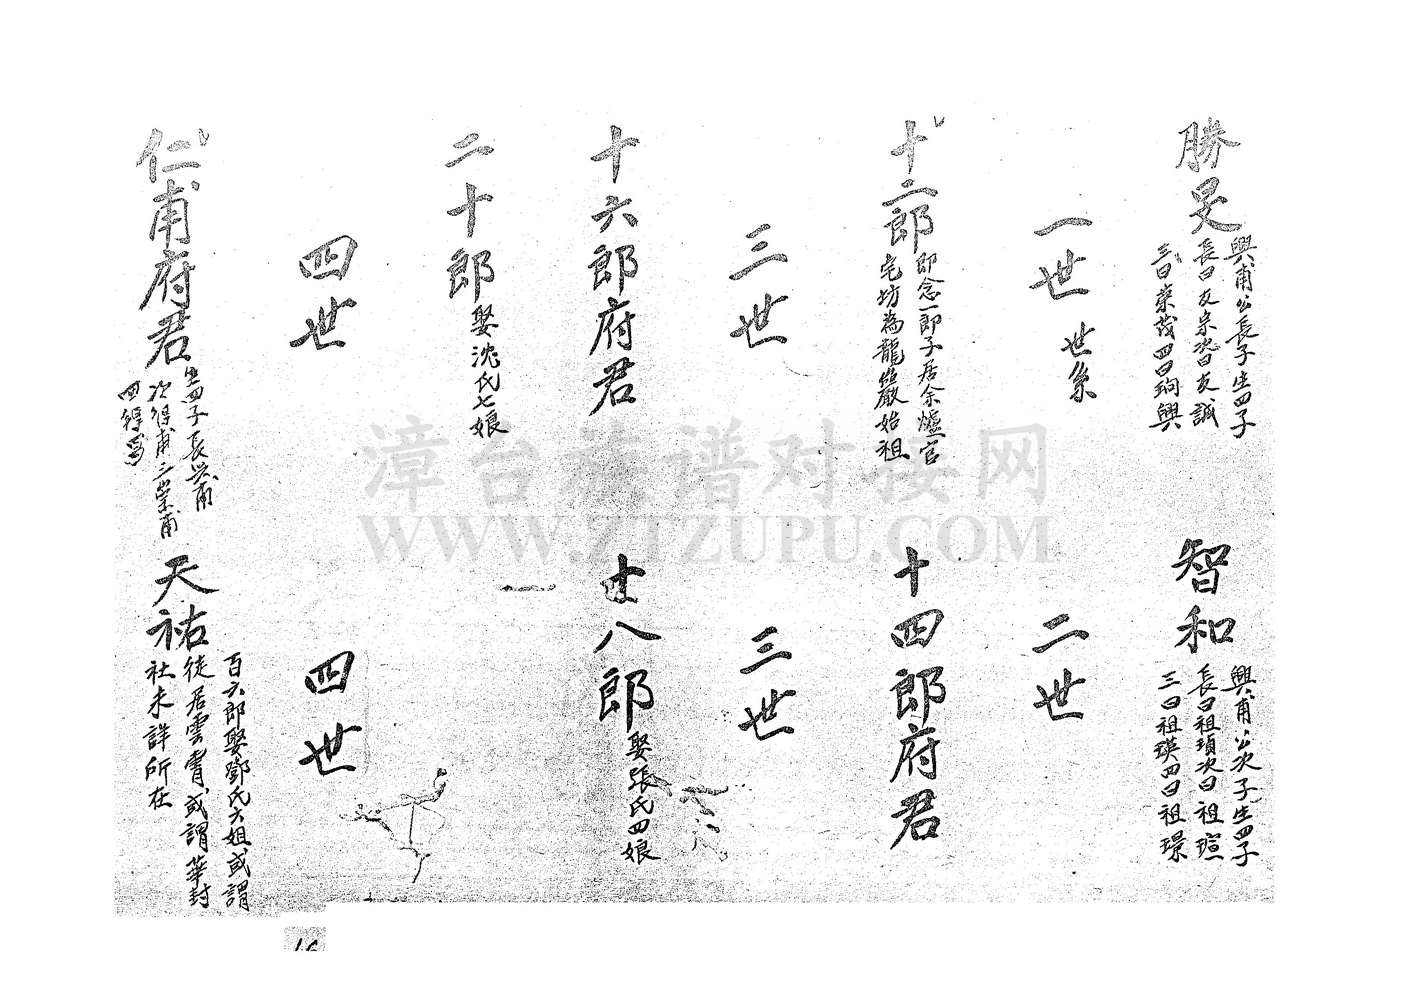 勝旻
興甫公長子生四子
長曰友崇次曰友誠
三曰榮茂四曰珣興
智和
興甫公次子生四子
長曰祖瑱次曰祖瑄
三曰祖瑛四曰祖璟
一世 世系
二世
十二郎
即念一郎子居余爐官
宅坊為龍巖始祖
十四郎府君
三世
三世
十六郎府君
廿八郎
娶張氏四娘
二十郎
娶沈氏七娘
四世
四世
仁甫府君
生四子長興甫
次得甫三崇甫
四得
天祐
百六郎娶鄧氏六姐或謂
徒居雲霄或謂華封
社未詳所在
漳台族谱对接网
WWW.ZTZUPU.COM
16